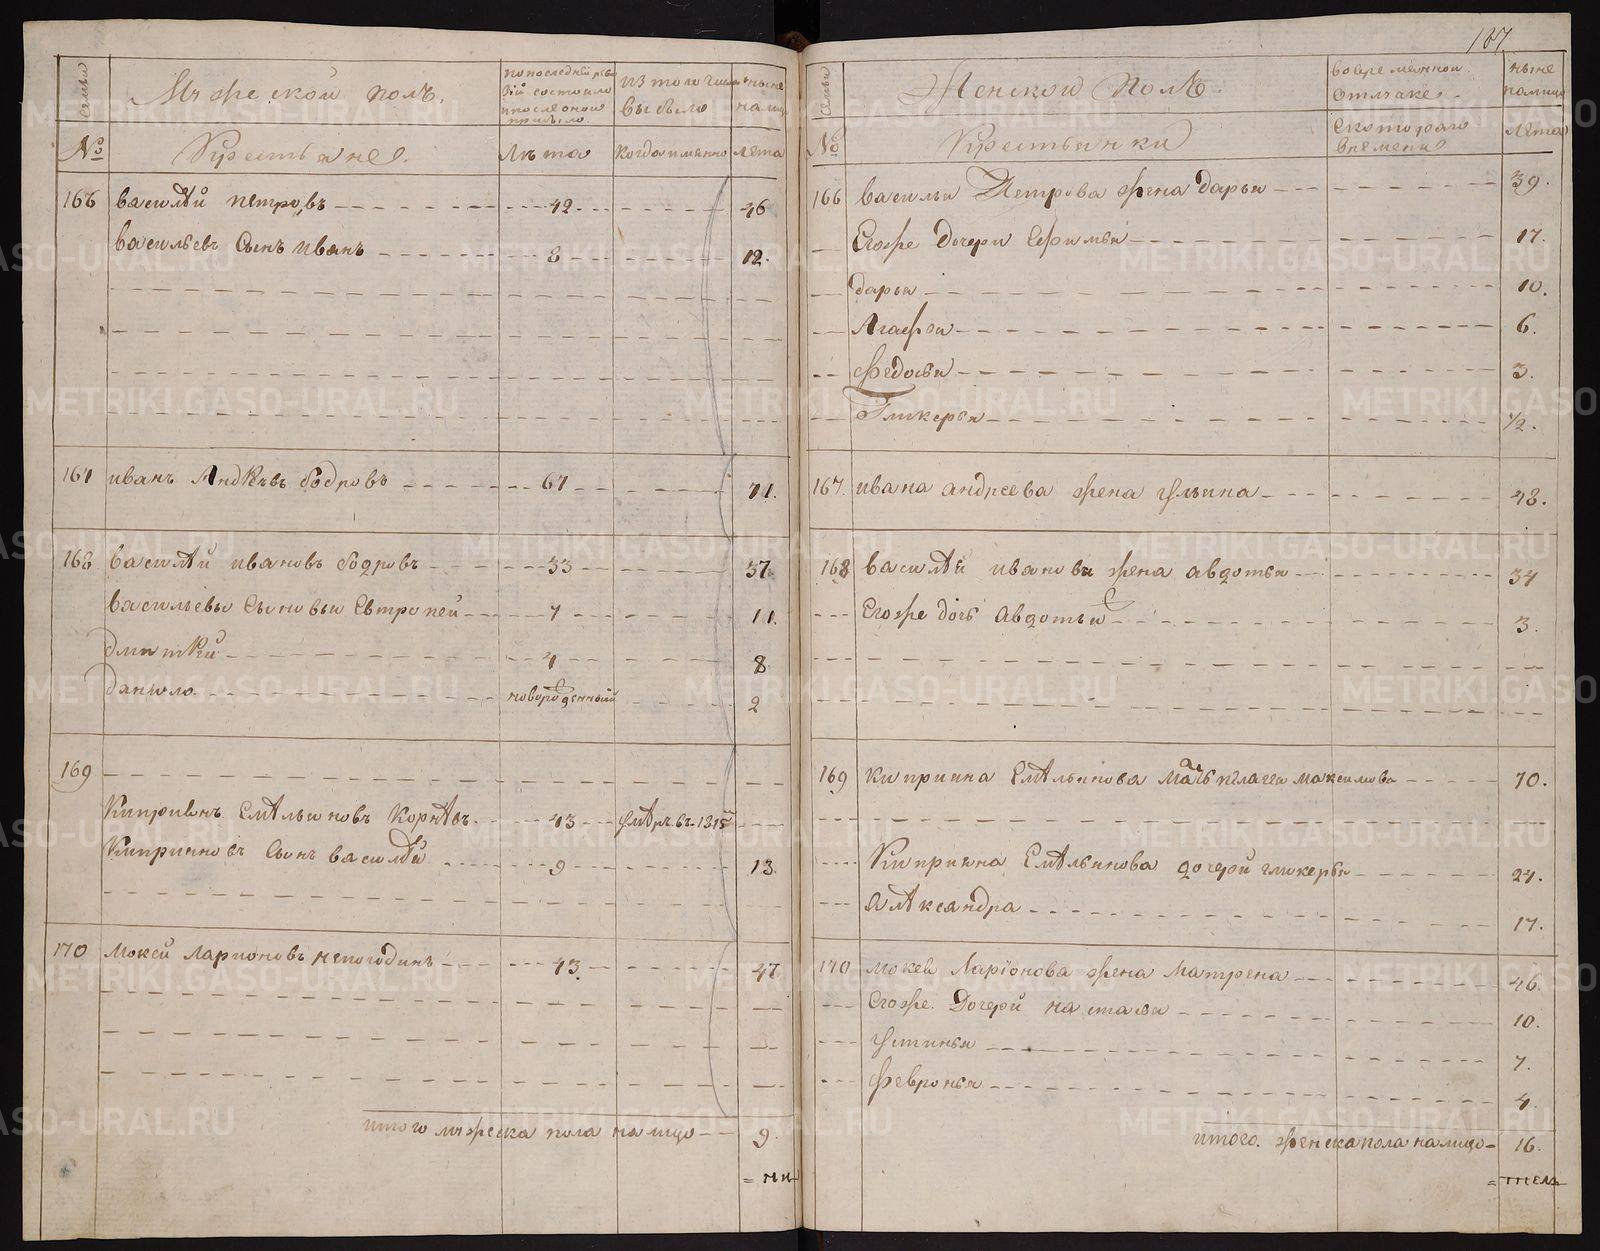 187
Семьи
Мужескои полъ.
по последней реви
зіи состояло
и после оной
прибыло.
из того числа
выбыло
ныне
налицо
№
Крестьяне.
Лѣта
когда именно
лета
166 василѣй петровъ 42 46
васильевъ Сынъ иванъ 8 12.
167 иванъ Андреевъ бодровъ 67 71.
168 василѣй ивановъ бодровъ 33 37
васильевы Сыновьи Евтропей 7 11.
дмитрей 4 8
данило новорожденный 2
169
Киприянъ Емѣльяновъ Корнѣвъ 43 умѣръ въ 1815
Киприяновъ Сынъ василѣй 9 13.
170 Мокей Ларионовъ непогодинъ 43. 47
итого мужеска пола налицо 9.
Семьи
Женскои Полъ.
во временной
отлучке
ныне
налицо
№
Крестьянки
скотораго
времени
лета
166 васильи Петрова жена дарья 39.
Егоже дочери Ефимья 17.
дарья 10.
Агафья 6.
федосья 3.
Гликерья 1/2.
167. ивана андреева жена ульяна 48.
168 василѣя иванова жена авдотья 34
Егоже дочь Авдотья 3.
169 киприяна Емѣльянова мать пелагея максимова 70.
Киприяна Емѣльянова дочери гликерья 24.
алѣксандра 17.
170 мокея Ларіонова жена Матрена 46.
Егоже. Дочери настасья 10.
устинья 7.
февронья 4
итого. женска пола налицо 16.